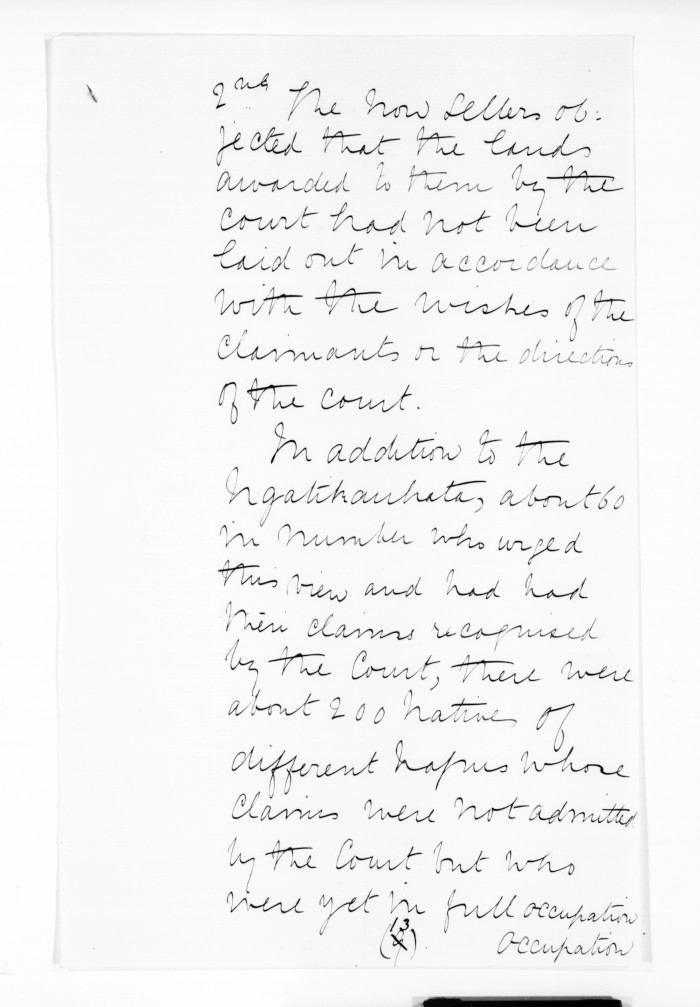 2nd The Non Sellers ob-
jected that the lands
awarded to them by the
court had not been
laid out in accordance
with the wishes of the
claimants or the directions
of the court.
In addition to the
Ngatikauhata, about 60
in number who urged
this view and had had
their claims recognised
by the Court, there were
about 200 Natives of
different hapus whose
claims were not admitted
by the Court but who
were yet in full occupation
(13) occupation